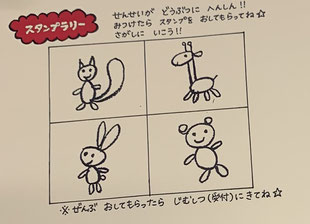 スタンプラリー
せんせいが どうぶつに へんしん!!
みつけたら スタンプを おしてもらってね☆
さがしに いこう!!
※ ぜんぶ おしてもらったら じむしつ(受付)にきてね☆